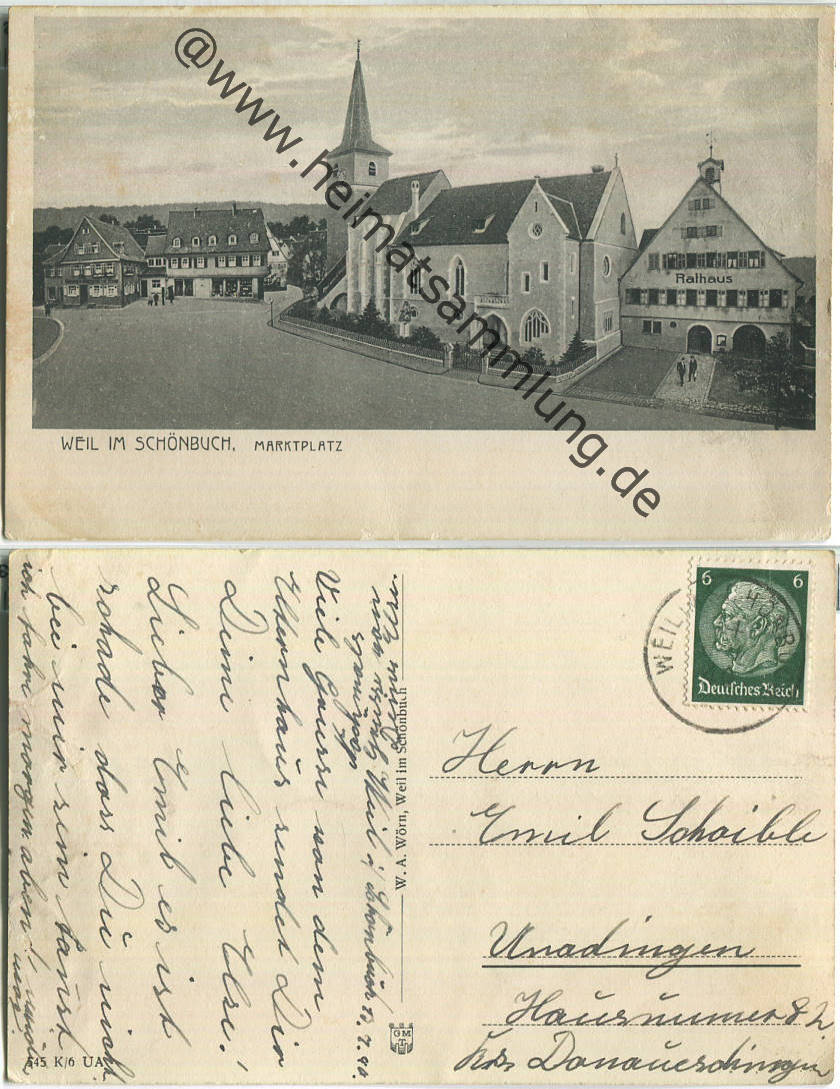 @www.heimatsammlung.de
Rathaus
WEIL IM SCHÖNBUCH, MARKTPLATZ
6 6
Deutsches Reich
WEIL
Herrn
Emil Schaible
Unadingen
Hausnummer 82
Krs. Donaueschingen
W. A. Wörn, Weil im Schönbuch
GMT
Weil i/ Schönbuch 7.40.
Viele Grüsse von dem
Elternhaus sendet Dir
Deine liebe Else!
Lieber Emil es ist
schade dass Du nicht
bei mir sein kannst
ich fahre morgen aben!
545 K/6 UA